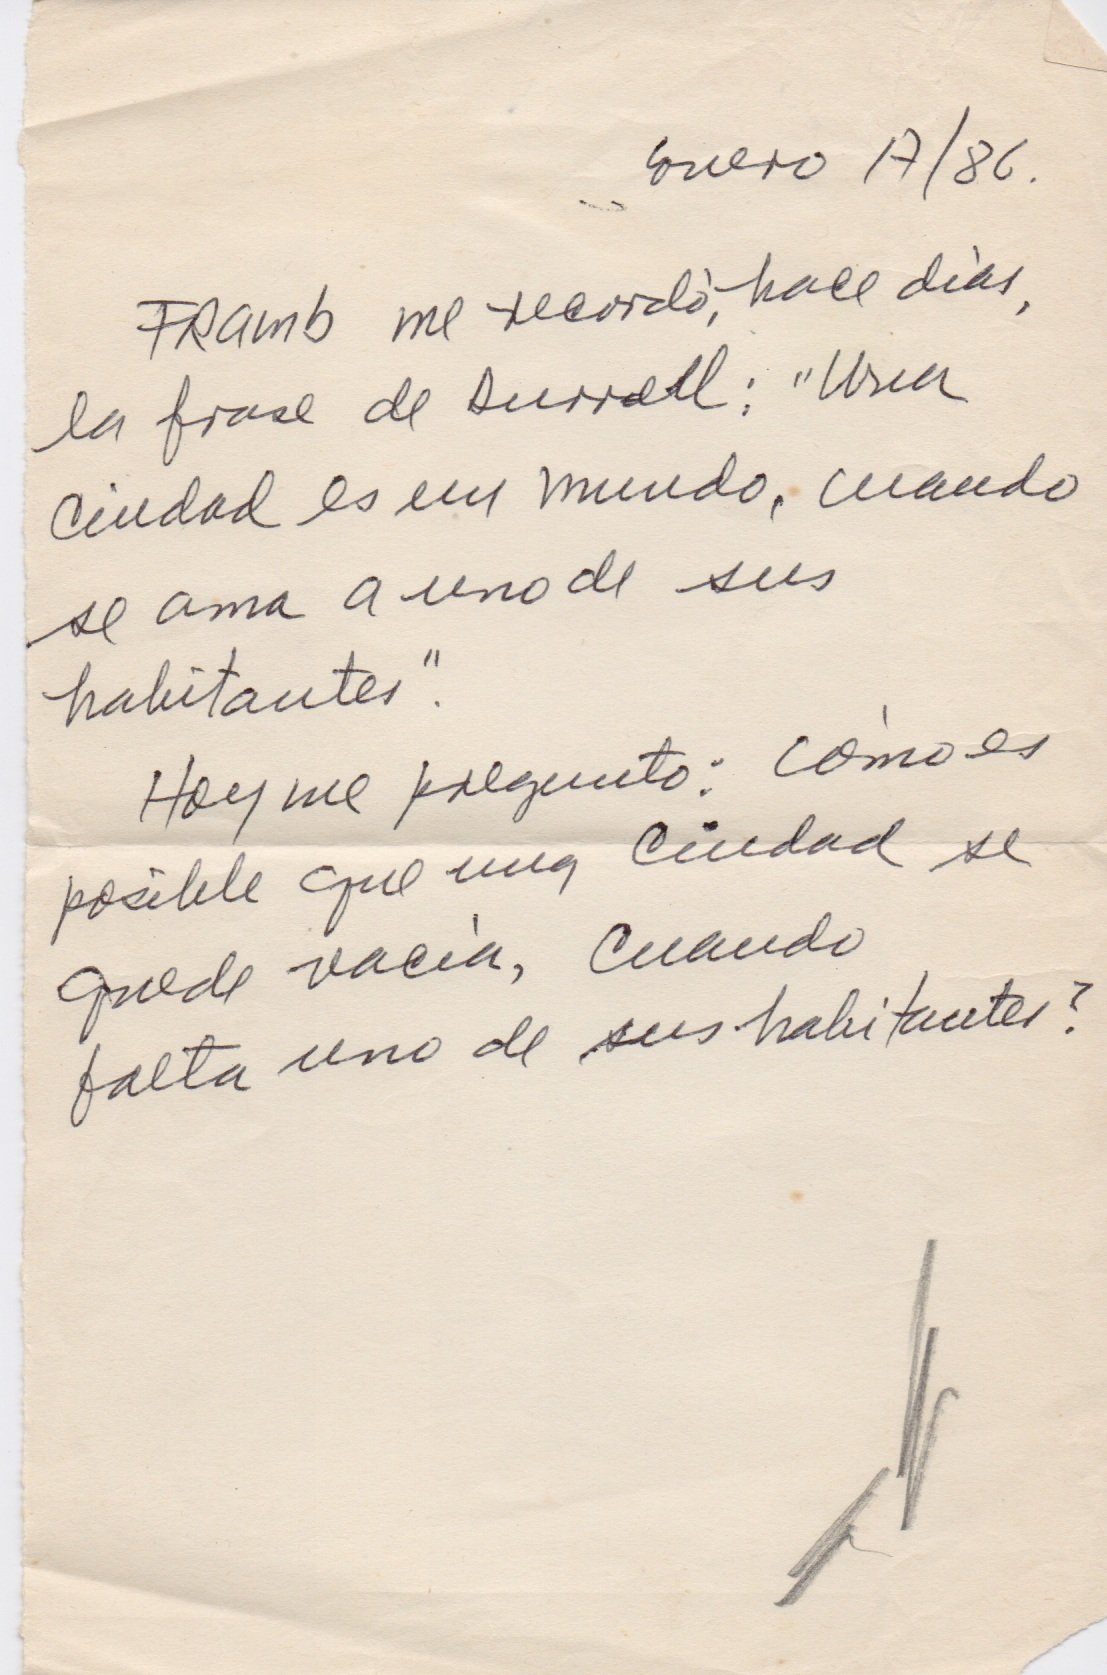 Enero 17/86.
FRamb me recordó, hace días,
la frase de Durrell: "Una
ciudad es un mundo, cuando
se ama a uno de sus
habitantes".
Hoy me pregunto: Cómo es
posible que una ciudad se
quede vacía, cuando
falta uno de sus habitantes?